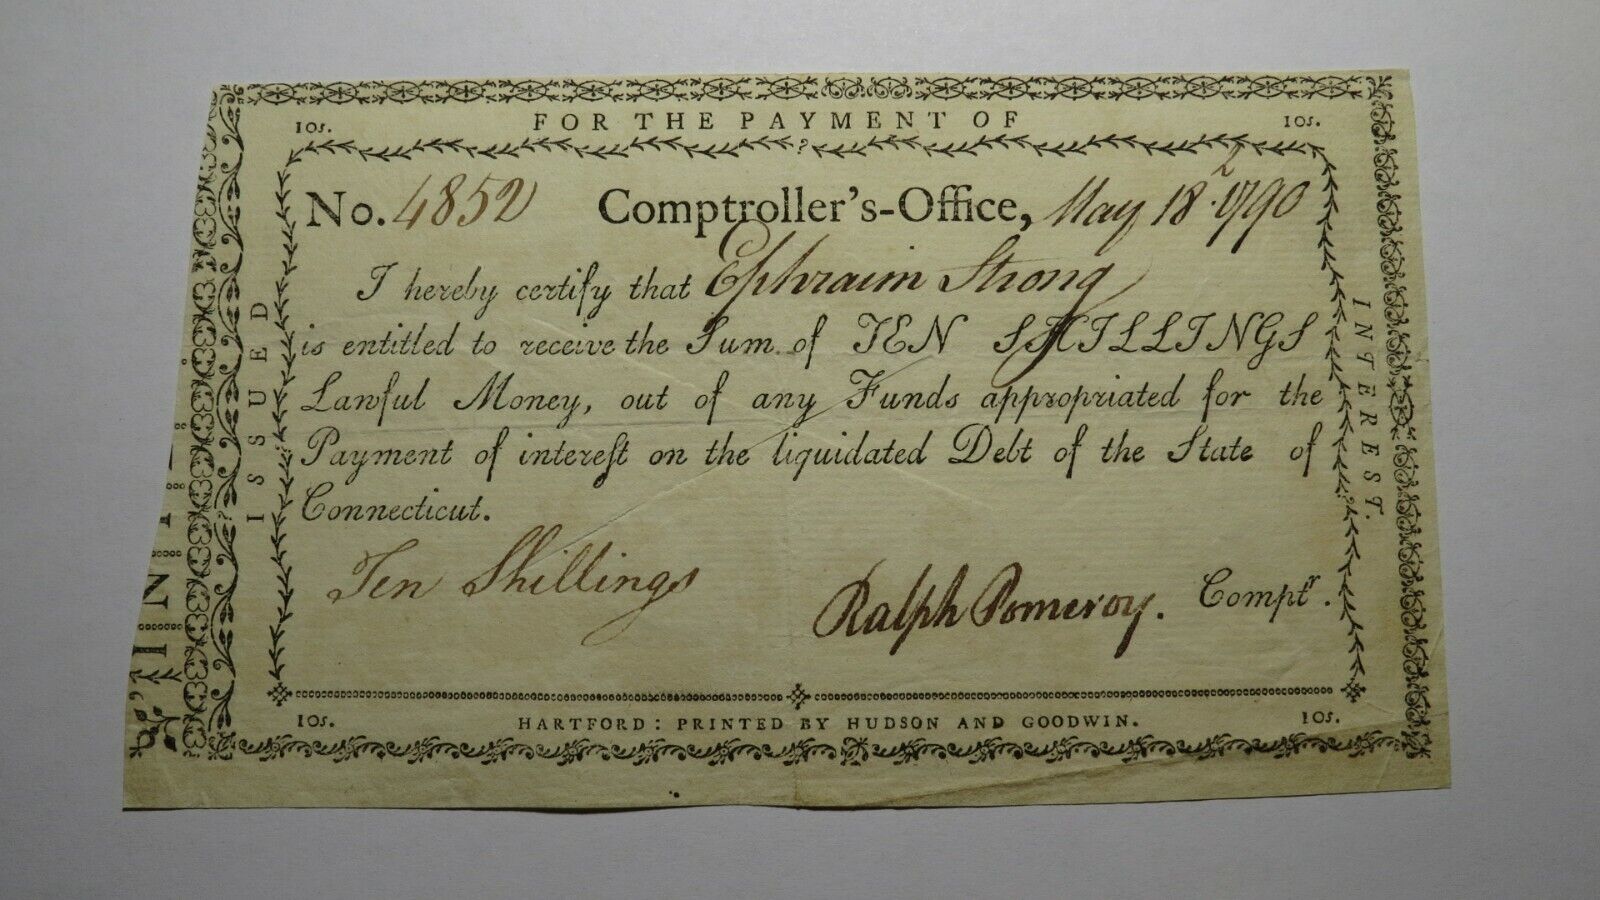 10s. FOR THE PAYMENT OF 10s.
No. 4852 Comptroller's-Office, May 18. 1790
I hereby certify that Ephraim Strong
is entitled to receive the Sum of TEN SHILLINGS
Lawful Money, out of any Funds appropriated for the
Payment of intereſt on the liquidated Debt of the State of
Connecticut.
Ten Shillings
Ralph Pomeroy. Comptr.
10s. HARTFORD: PRINTED BY HUDSON AND GOODWIN. 10s.
ISSUED
INTEREST.